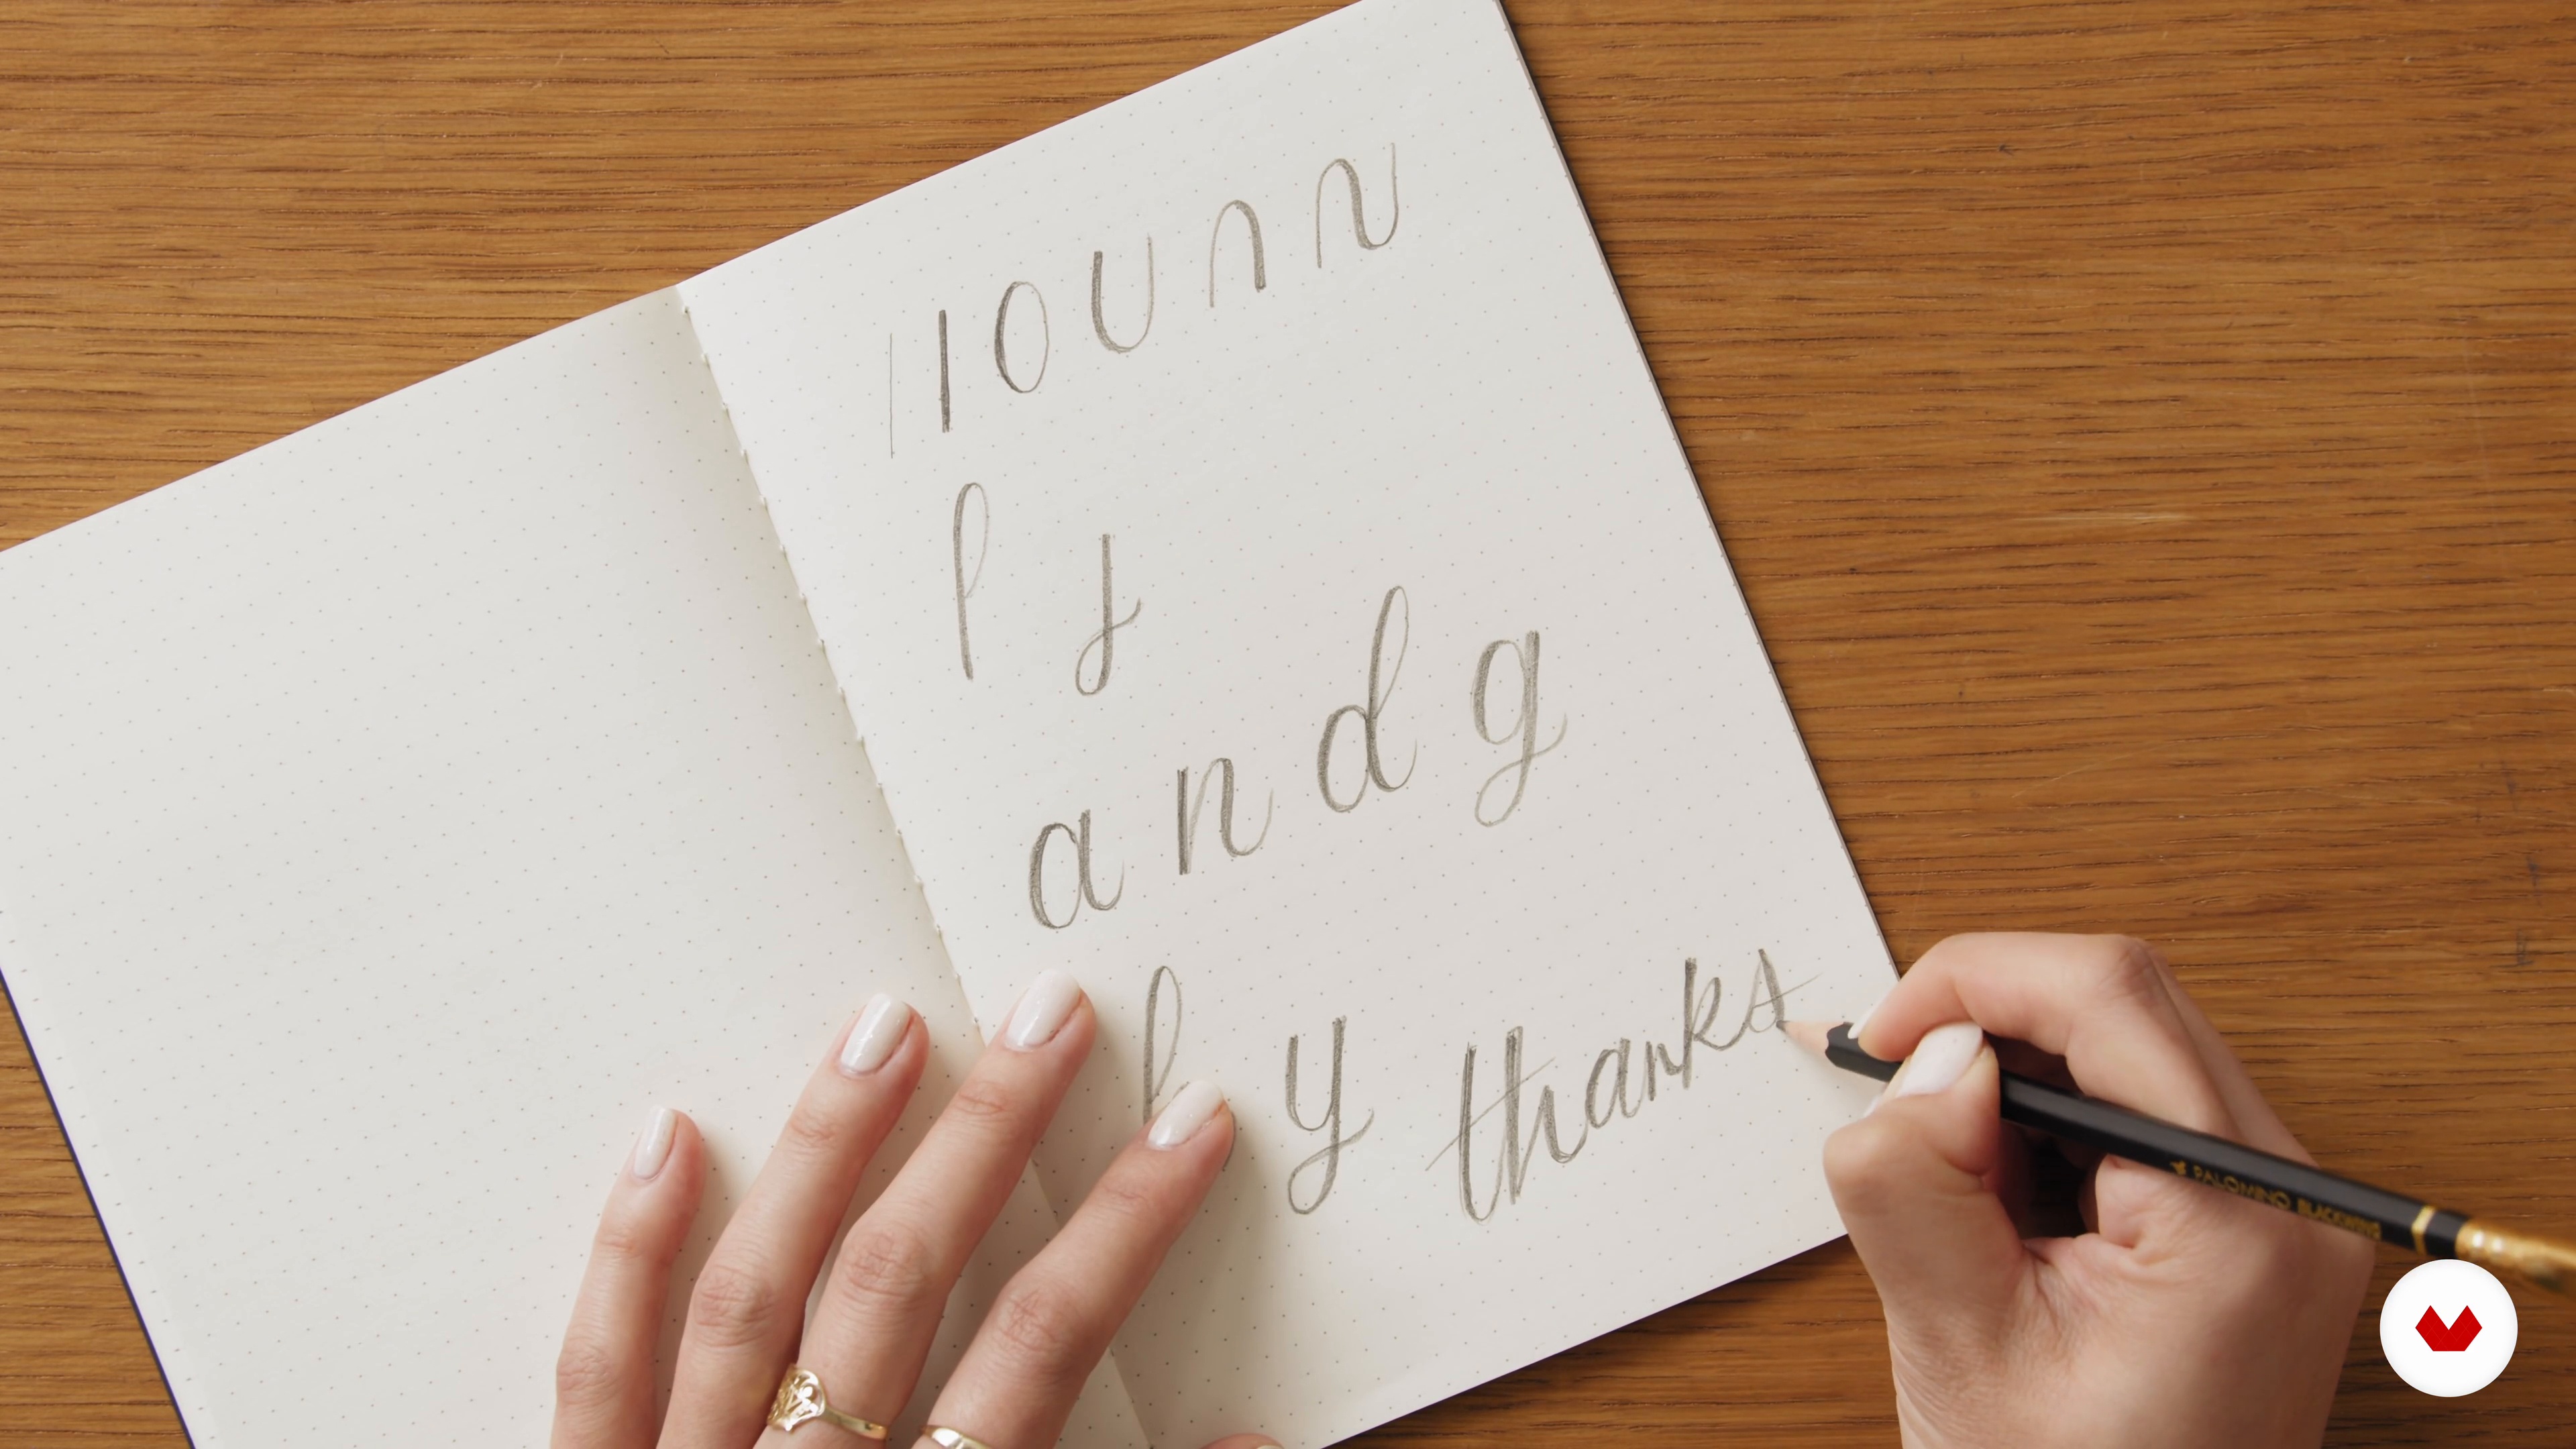 a n d g
y thanks
PALOMINO BLACKWING